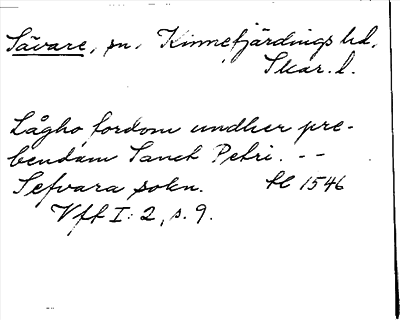 Sävare, sn, Kinnefjärdings hd,
Skar. l.
Lågho, fordom undher pre-
bendam Sanct Petri. - -
Sefvara sokn. hl 1546
Vff I: 2, s. 9.